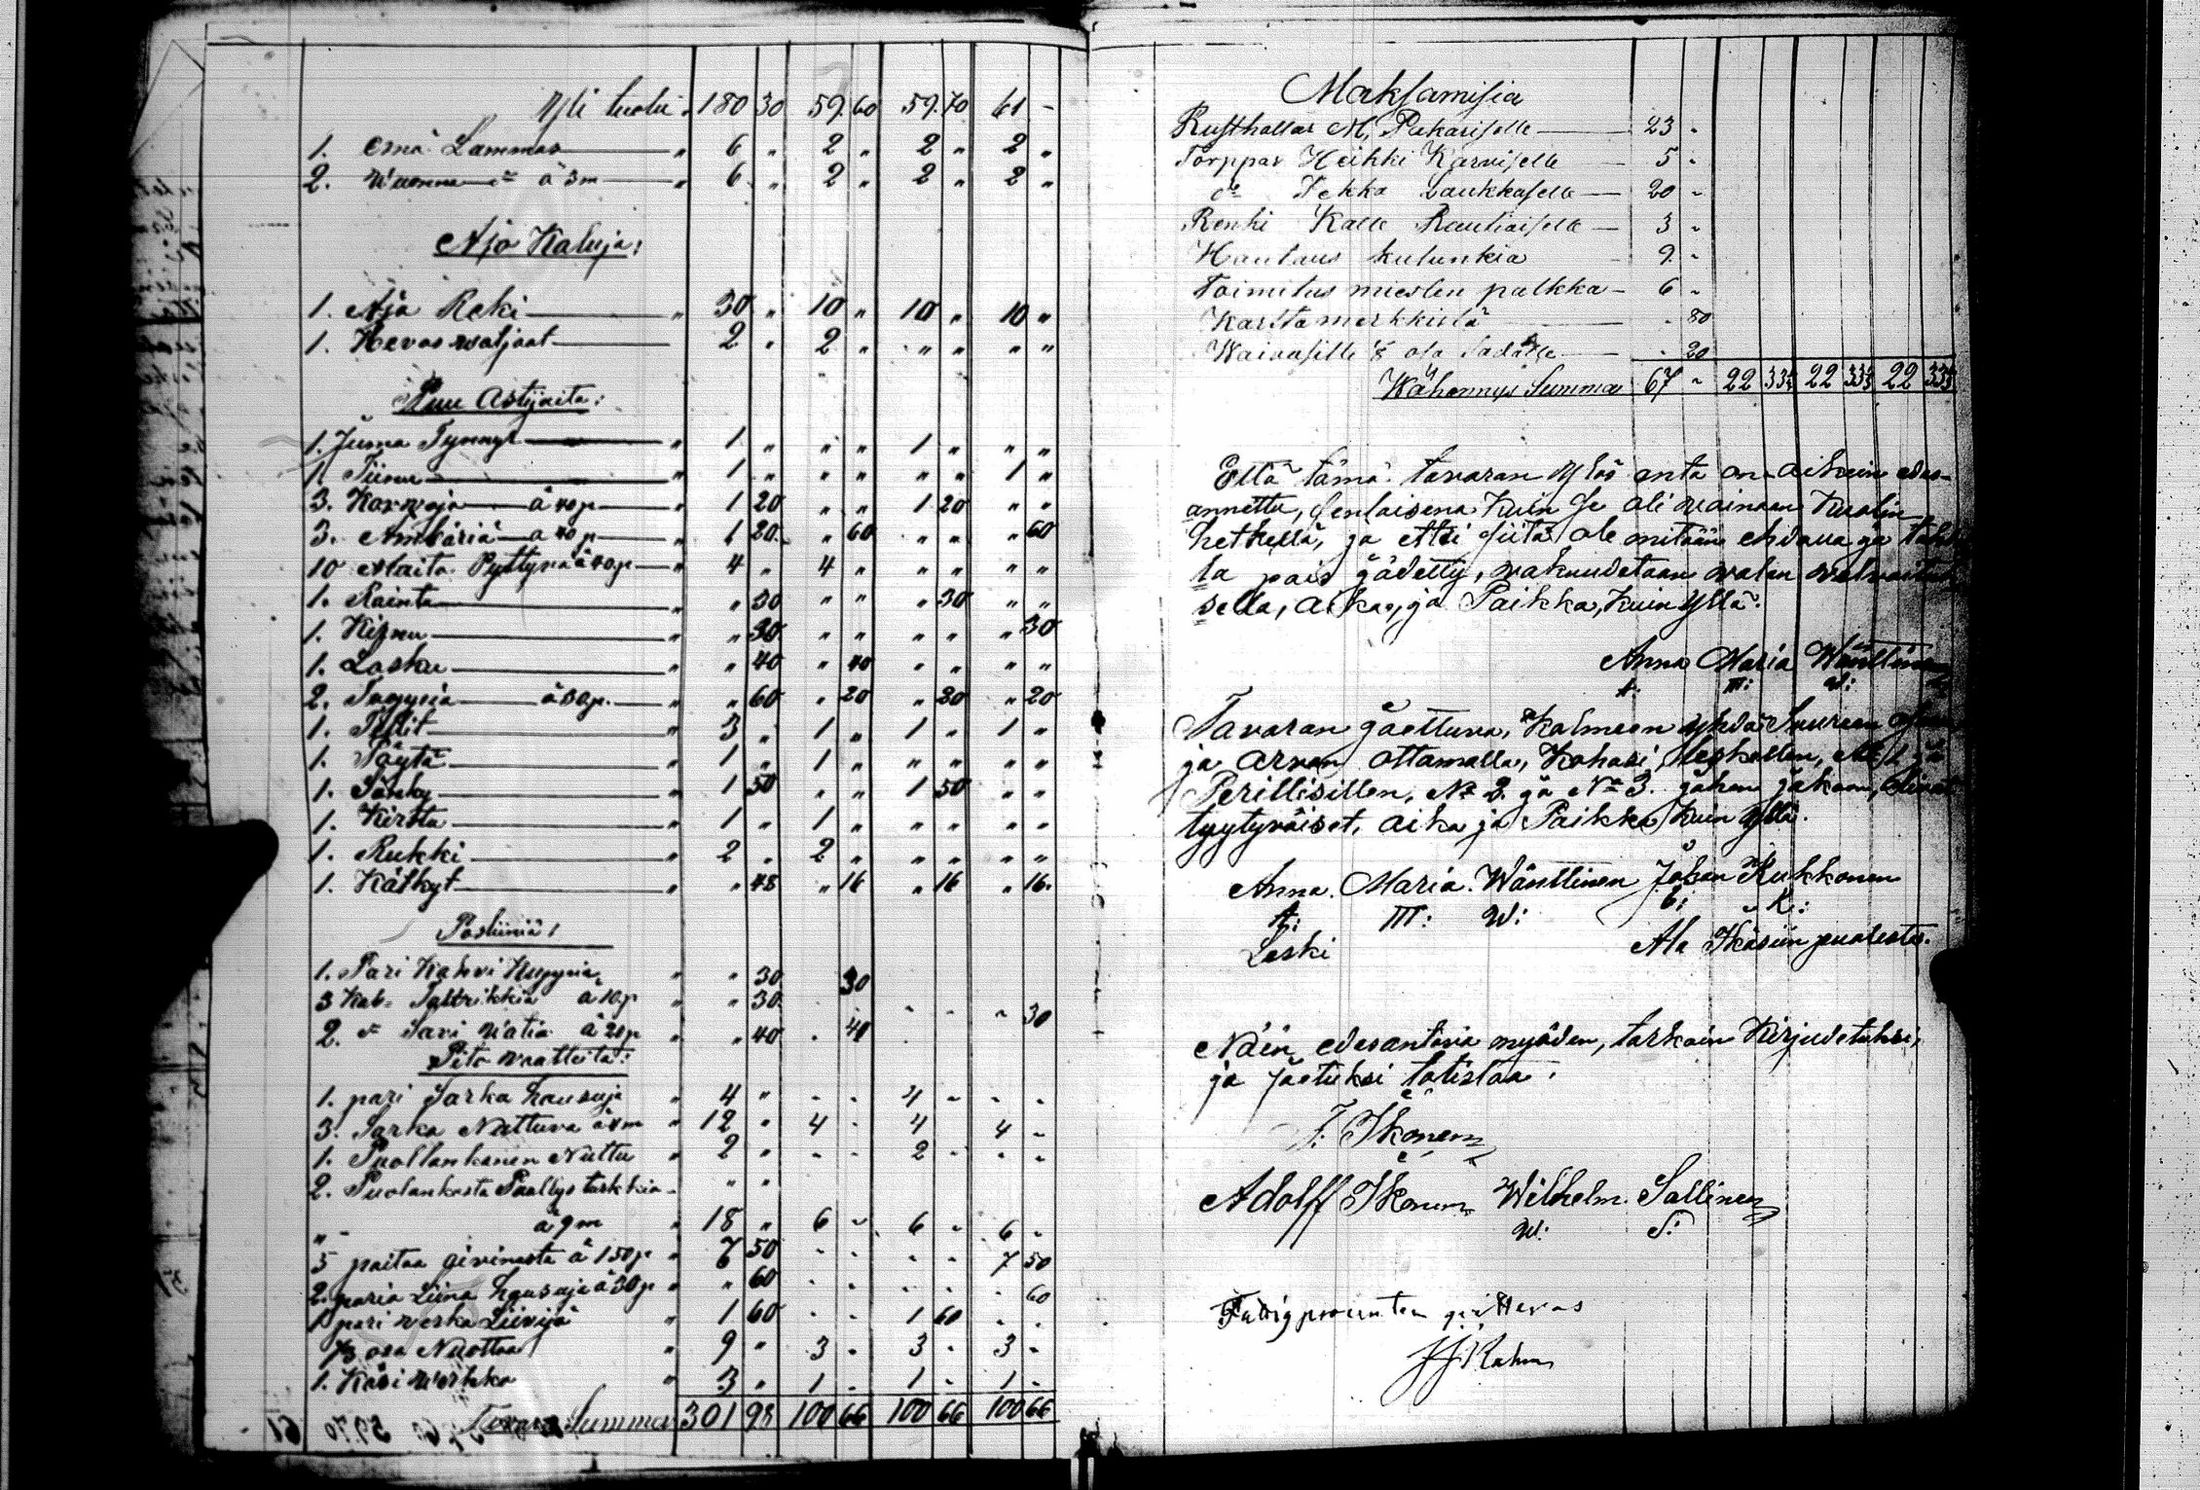 Yli tuotu 180 30 59 60 59 70 61 -
1. Emä Lammas " 6 " 2 " 2 " 2 "
2. Wuonna à 3m " 6 " 2 " 2 " 2 "
Ajo Kaluja:
1. Ajo Reki " 30 " 10 " 10 " 10 "
1. Hevos waljaat " 2 " 2 " " " " "
Puu Astijoita:
1. Juoma Tynnyr " 1 " " " 1 " " "
1. Tiinu " 1 " " " " " 1 "
3. Korwoja à 40p " 1 20 " " 1 20 " "
3. Ämbäriä à 40p " 1 20 " 60 " " " 60
10 Maito Pyttynä à 40p " 4 " 4 " " " " "
1. Rainta " " 30 " " " 30 " "
1. Kirnu " " 30 " " " " " 30
1. Lasku " " 40 " 40 " " " "
2. à 30p. " " 60 " 20 " 20 " 20
1. " 3 " 1 " 1 " 1 "
1. Pöytä " 1 " 1 " " " " "
1. Sänky " 1 50 " " 1 50 " "
1. Kirstu " 1 " 1 " " " " "
1. Rukki " 2 " 2 " " " " "
1. Kätkyt " " 48 " 16 " 16 " 16
Posliiniä:
1. Pari Kahvi Kuppia " " 30 30
3 Kab- Taltrikkiä à 10p " " 30 - - - 30
2. d:o Savi Watia à 20p " " 40 . 40
Pito waatteita:
1. pari Sarka housuja " 4 " - - 4 - - -
3. Sarka Nuttuva à 4m " 12 " 4 - 4 4 -
1. Puollankanen Nuttu " 2 " - - 2 - - -
2. Puolankasta Päällys turkkia " "
" - à 9m " 18 " 6 - 6 - 6 -
5 paitaa aivinasta à 150p " 7 50 - - - - 7 50
2. paria Liina housuja à 30p " " 60 - - - - - 60
1 pari werka Liivijä " 1 60 - - 1 60 - -
1/3 osa Nuottaa " 9 " 3 - 3 - 3 -
1. Käsi " 3 " 1 - 1 - 1 -
Tavara Summa 301 98 100 66 100 66 100 66
Maksamisia
Rusthollar M, Pakariselle 23 -
Torppar Heikki Karviselle 5 -
d:o Pekka Laukkaselle 20 -
Renki Kalle Rautiaiselle 3 -
Hautaus kulunkia 9 -
Toimitus miesten palkka 6 -
Karttamerkkistä - 80
Waivasille 1/8 osa Sadalle - 20
Wähennys Summa 67 - 22 33 1/3 22 33 1/3 22 33 1/3
Että tämä tavaran Ylös anto on oikein edes-
annettu, senlaisena kuin se oli wainaan Kuolin
hetkellä, ja ettei siitä ole mitään ehdolla ja
ta pois jädetty, wakuudetaan walan
sella, aika, ja Paikka, kuin Yllä.
Anna Maria Wänttinen
A: M: W:
Tavaran jaettuva, Kolmeen yhdä Suureen
ja arvan ottamalla, Kohasi leskellen, N:o 1 ja
Perillisillen, N:o 2. ja N:o 3. johon jakoon, olivat
tyytyväiset, aika ja Paikka kuin Yllä.
Anna. Maria. Wänttinen Johan Kukkonen
A: M: W: K:
Leski Ala Ikäsiin puolesta.
Näin edesantovia myöden, tarkoin Kirjudetuksi,
ja Jaetuksi totistaa.
F: Ikonen
Adolff Ikonen Wilhelm. Sallinen
W: S: